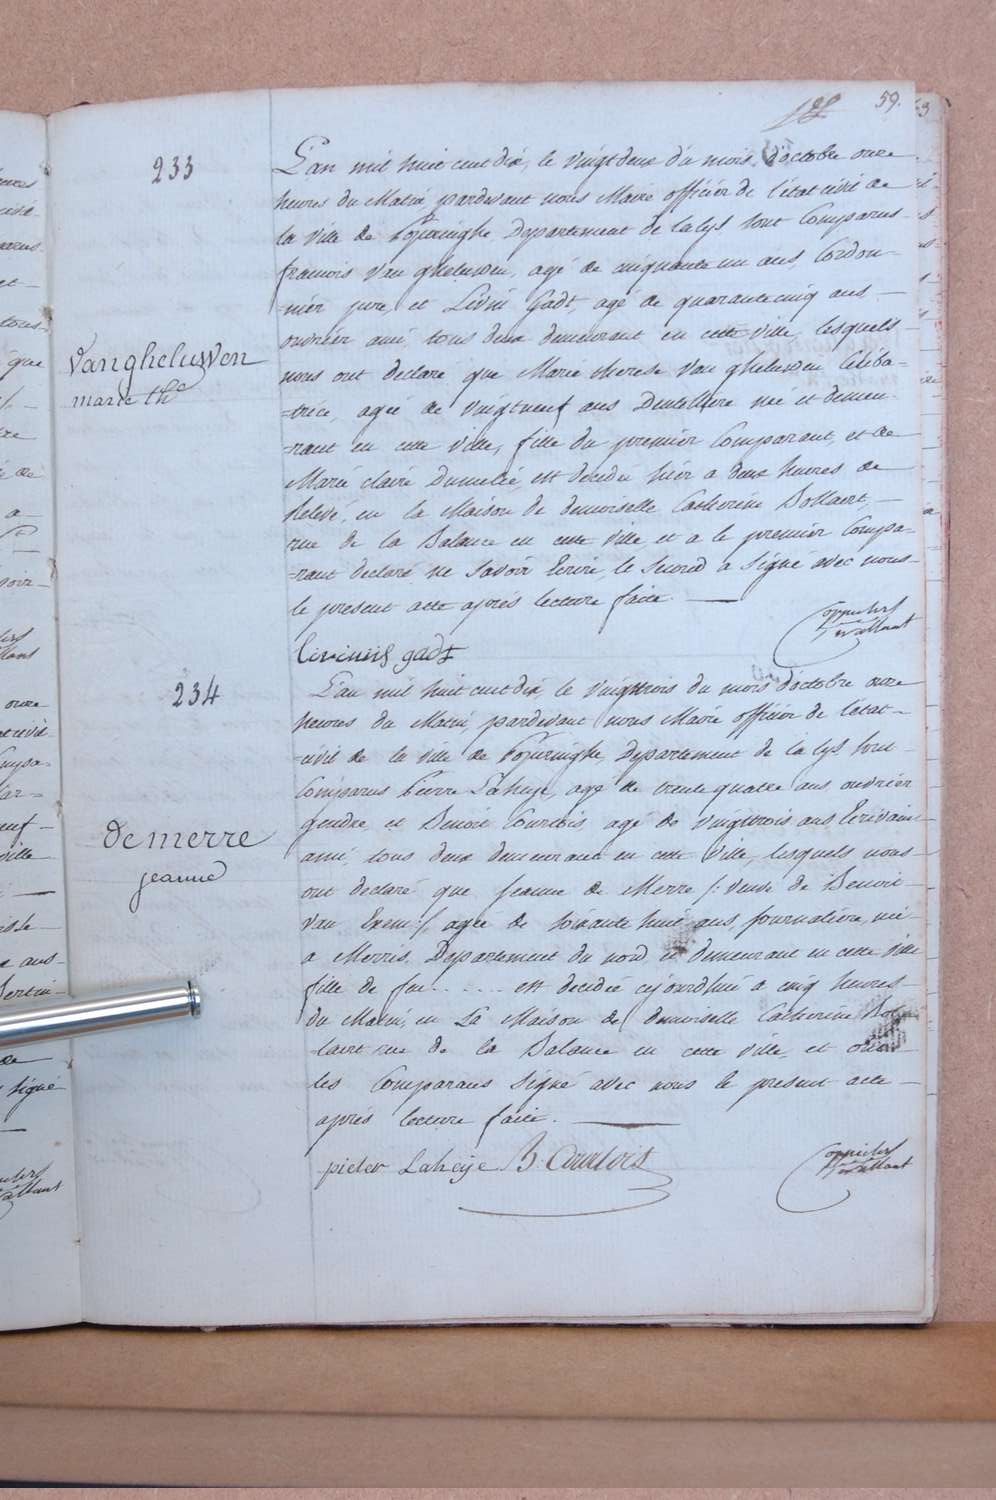 59.
233
L'an mil huit cent dix, le vingt deux du mois d'octobre onze
heures du Matin, pardevant nous Maire officier de l'état civil de
la ville de Poperinghe, Departement de la Lys sont Comparus
francois Van gheluwen, agé de cinquante un ans, Cordon-
-nier pere, et Livin Gadt, agé de quarante cinq ans
ouvrier ami, tous deux demeurant en cette ville, lesquels
Vangheluwen
marie the
nous ont declaré que Marie therese Van gheluwen Céliba-
-trice, agée de vingtneuf ans Dentelliere née et demeu-
-rant en cette ville, fille du premier Comparant, et de
Marie claire Dumelié, est decedée hier a deux heures de
Relevé, en la Maison de demoiselle Catherine Bollaert,
rue de la Balance en cette ville, et a le premier Compa-
-rant declaré ne savoir Ecrire, le second a signé avec nous
le present acte aprés lecture faite.
livinus gadt
234
L'an mil huit cent dix, le vingttrois du mois d'octobre onze
heures du Matin, pardevant nous Maire officier de l'état-
-civil de la ville de Poperinghe, Departement de la Lys sont
Comparus Pierre Laheye, agé de trente quatre ans, ouvrier
gendre, et Benoit Courtois, agé de vingttrois ans Ecrivain
de merre
jeanne
ami, tous deux demeurant en cette ville, lesquels nous
ont declaré que Jeanne de Merre /: veuve de Benoit
Van Exem :/, agée de soixante huit ans, journalière, née
a Merris, Departement du nord et demeurant en cette ville
fille de feu . . . . . est decedée cejourdhui a cinq heures
du Matin, en La Maison de demoiselle Catherine Bol
laert rue de la Balance en cette ville, et ont
les Comparans signé avec nous le present acte
aprés lecture faite.
pieter Laheije B. Courtois